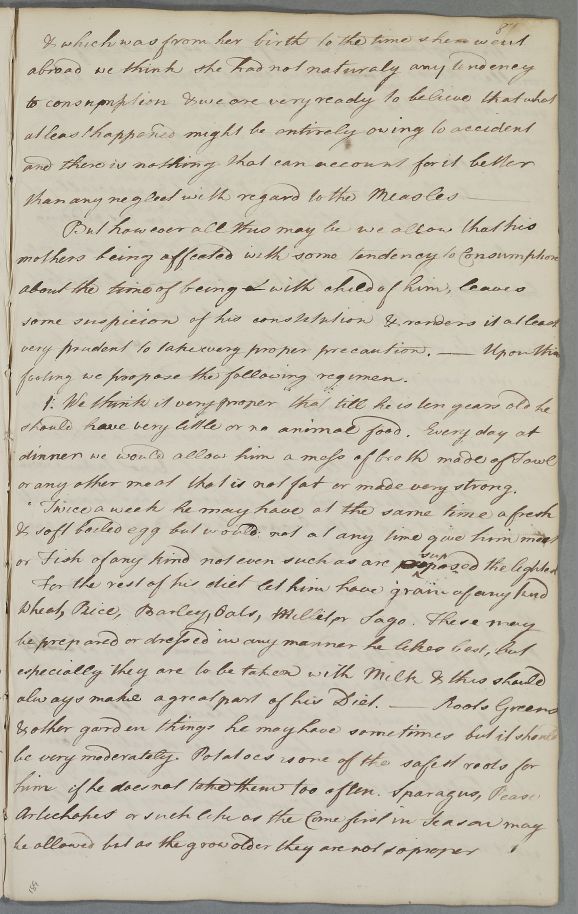 & which was from her birth to the time she went
abroad we think she had not naturaly any tendency
to consumption & we are very ready to believe that what
at least happened might be entirely owing to accident
and there is nothing that can account for it better
than any neglect with regard to the Measles —
But however all this may be we allow that his
mothers being affected with some tendency to Consumption
about the time of being with child of him, leaves
some suspicion of his constitution & renders it at least
very prudent to take every proper precaution. — Upon this
footing we propose the following regimen.
1. We think it very proper that till he is ten years old he
should have very little or no animal food. Every day at
dinner we would allow him a mess of broth made of Fowl
or any other meat that is not fat or made very strong.
Twice a week he may have at the same time a fresh
& soft boiled egg but would not at any time give him meat
or Fish of any kind not even such as are supposed the lightest
For the rest of his diet let him have grain of any kind
Wheat, Rice, Barley, Oats, Millet or Sago. These may
be prepared or dressed in any manner he likes best, but
especially they are to be taken with Milk & this should
always make a great part of his Diet. — Roots Greens
& other garden things he may have sometimes but it should
be very moderately. Potatoes is one of the safest roots for
him if he does not take them too often. Sparagus, Pease
Artichokes or such like as the Come first in Season may
be allowed but as the grow older they are not so proper